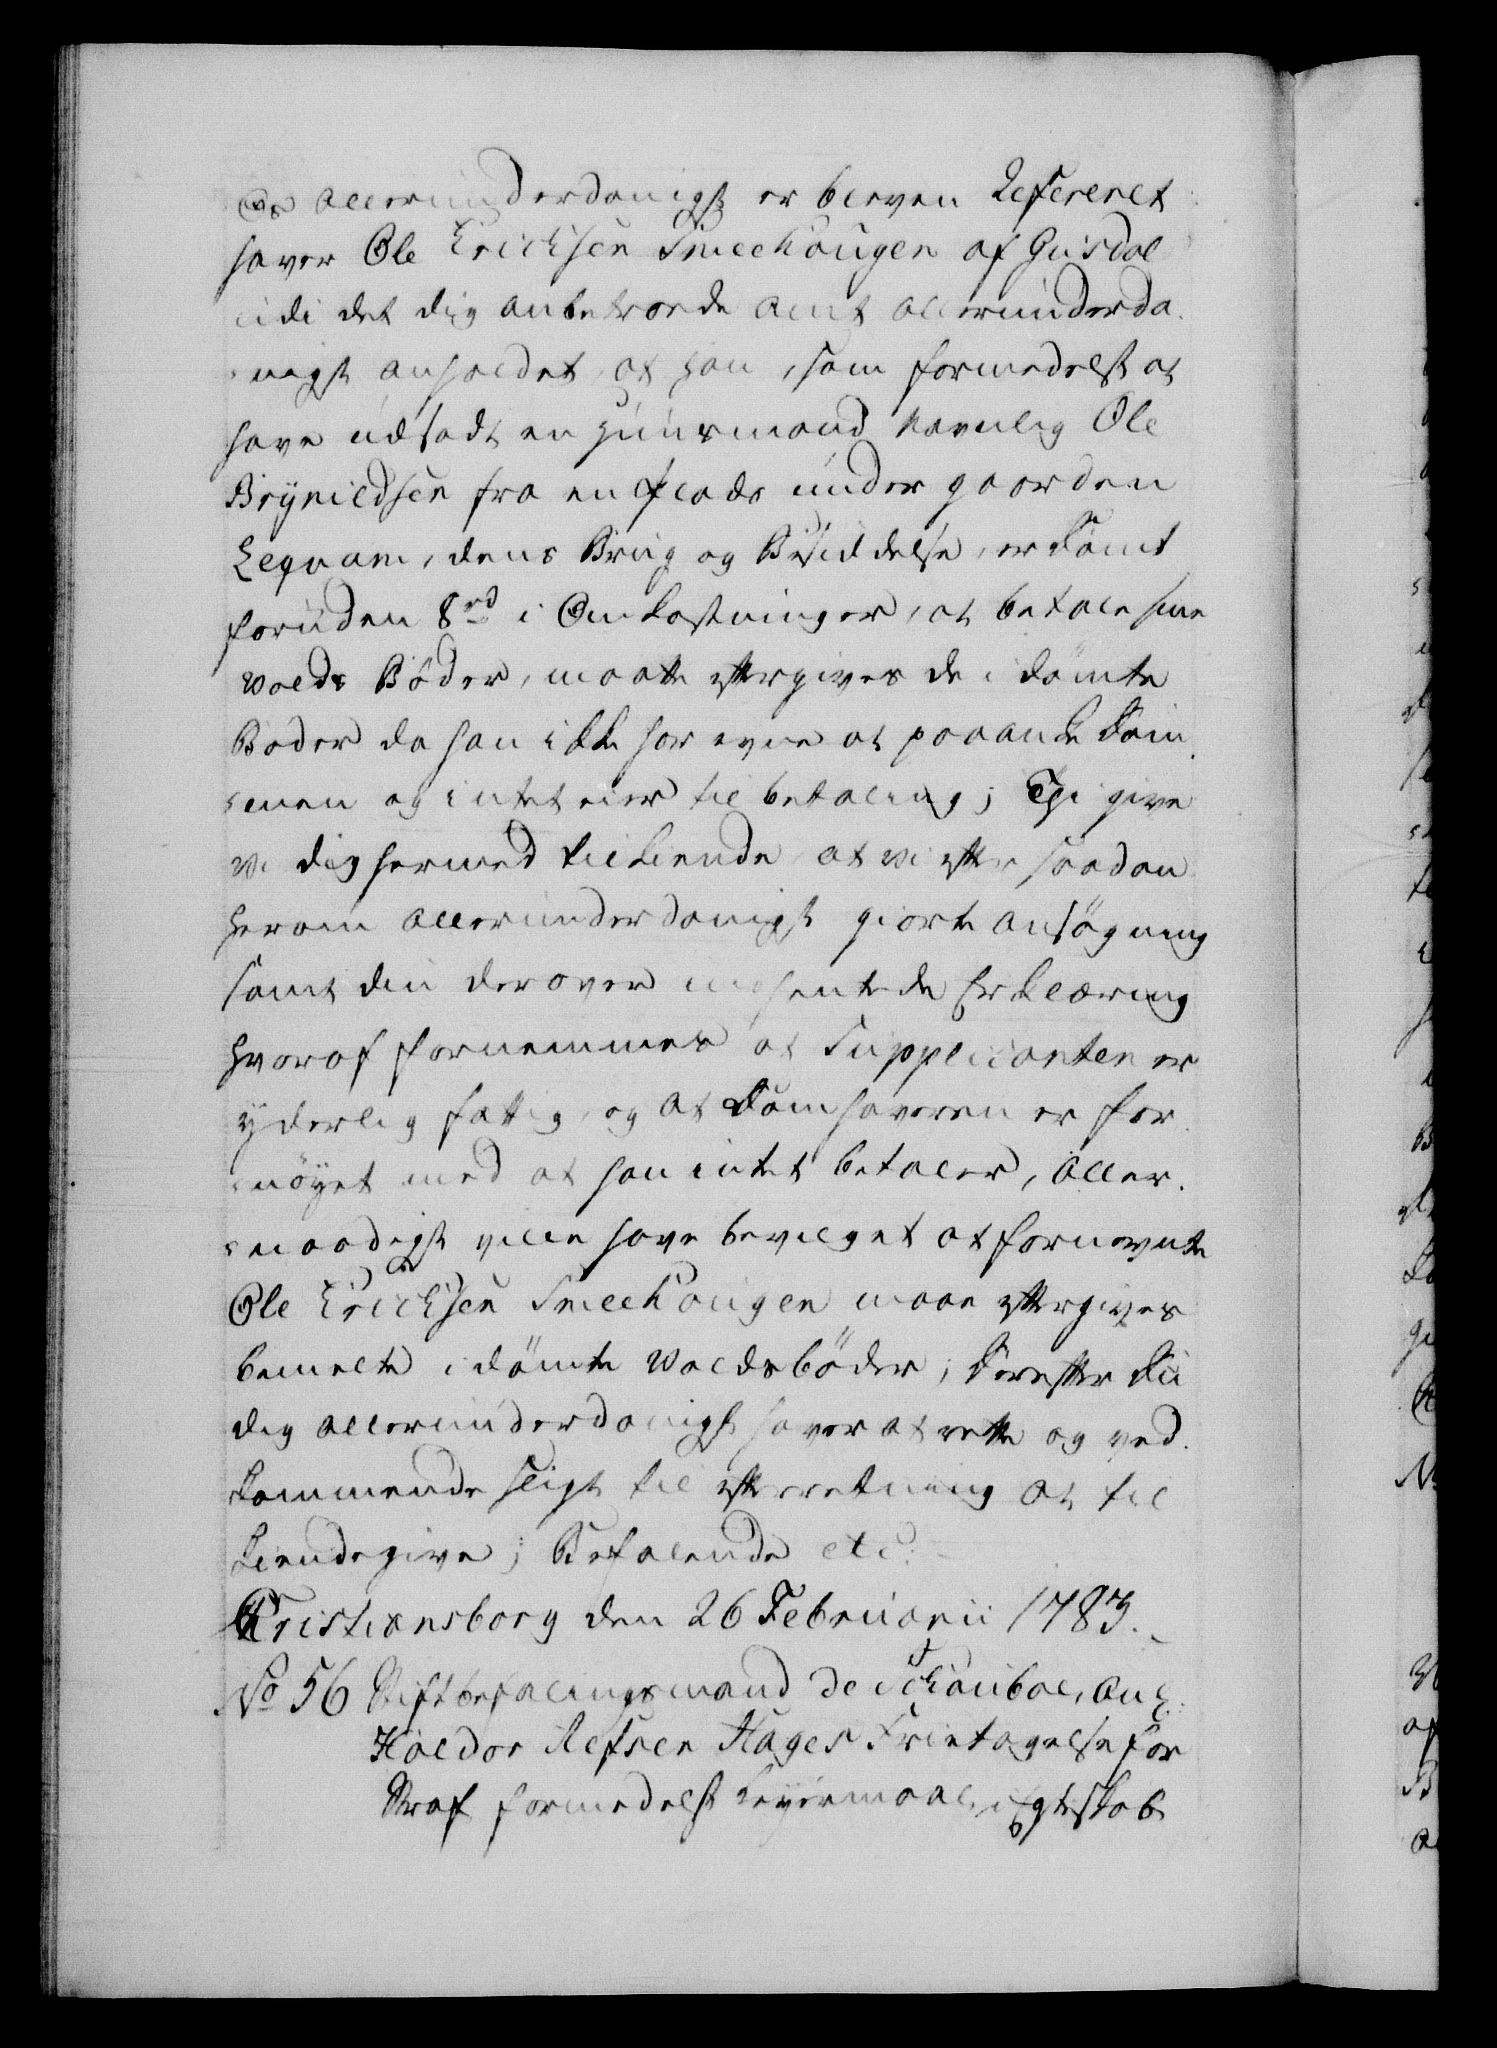 Os allerunderdanigst er bleven Refereret
haver Ole Erichsen Smeehougen af Gusdal
udi det dig anbetroede Amt allerunderda-
nigst anholdet, at han, som formedelst at
have udsadt en Huusmand navnlig Ole
Brynildsen fra en Plads under gaarden
Leqvam, dens Brug og Besiddelse, er dømt
foruden 8 rd i Omkostninger, at betale sine
Volds Bøder, maatte eftergives de idømte
Bøder da han ikke har evne at paaanke Dom-
men og intet eier til betaling; Thi give
vi dig hermed tilkiende at vi efter saadan
herom allerunderdanigst giorte Ansøgning
samt din derover indhentede Erklæring
hvoraf fornemmes at Supplicanten er
yderlig fattig, og at Domhaveren er for-
nøyet med at han intet betaler, Aller-
naadigst ville have bevilget at fornevnte
Ole Erichsen Smeehougen maae eftergives
bemelte idømte Voldsbøder; Derefter du
dig allerunderdanigst haver at rette og ved-
kommende sligt til efterretning at til
kiendegive; Befalende etc:
Christiansborg den 26 Februarii 1783.
No 56 Stiftbefalingsmand de Schouboe, Ank:
Haldor Refsen Hages Frietagelse for
Straf formedelst Leyermaal i Egteskab